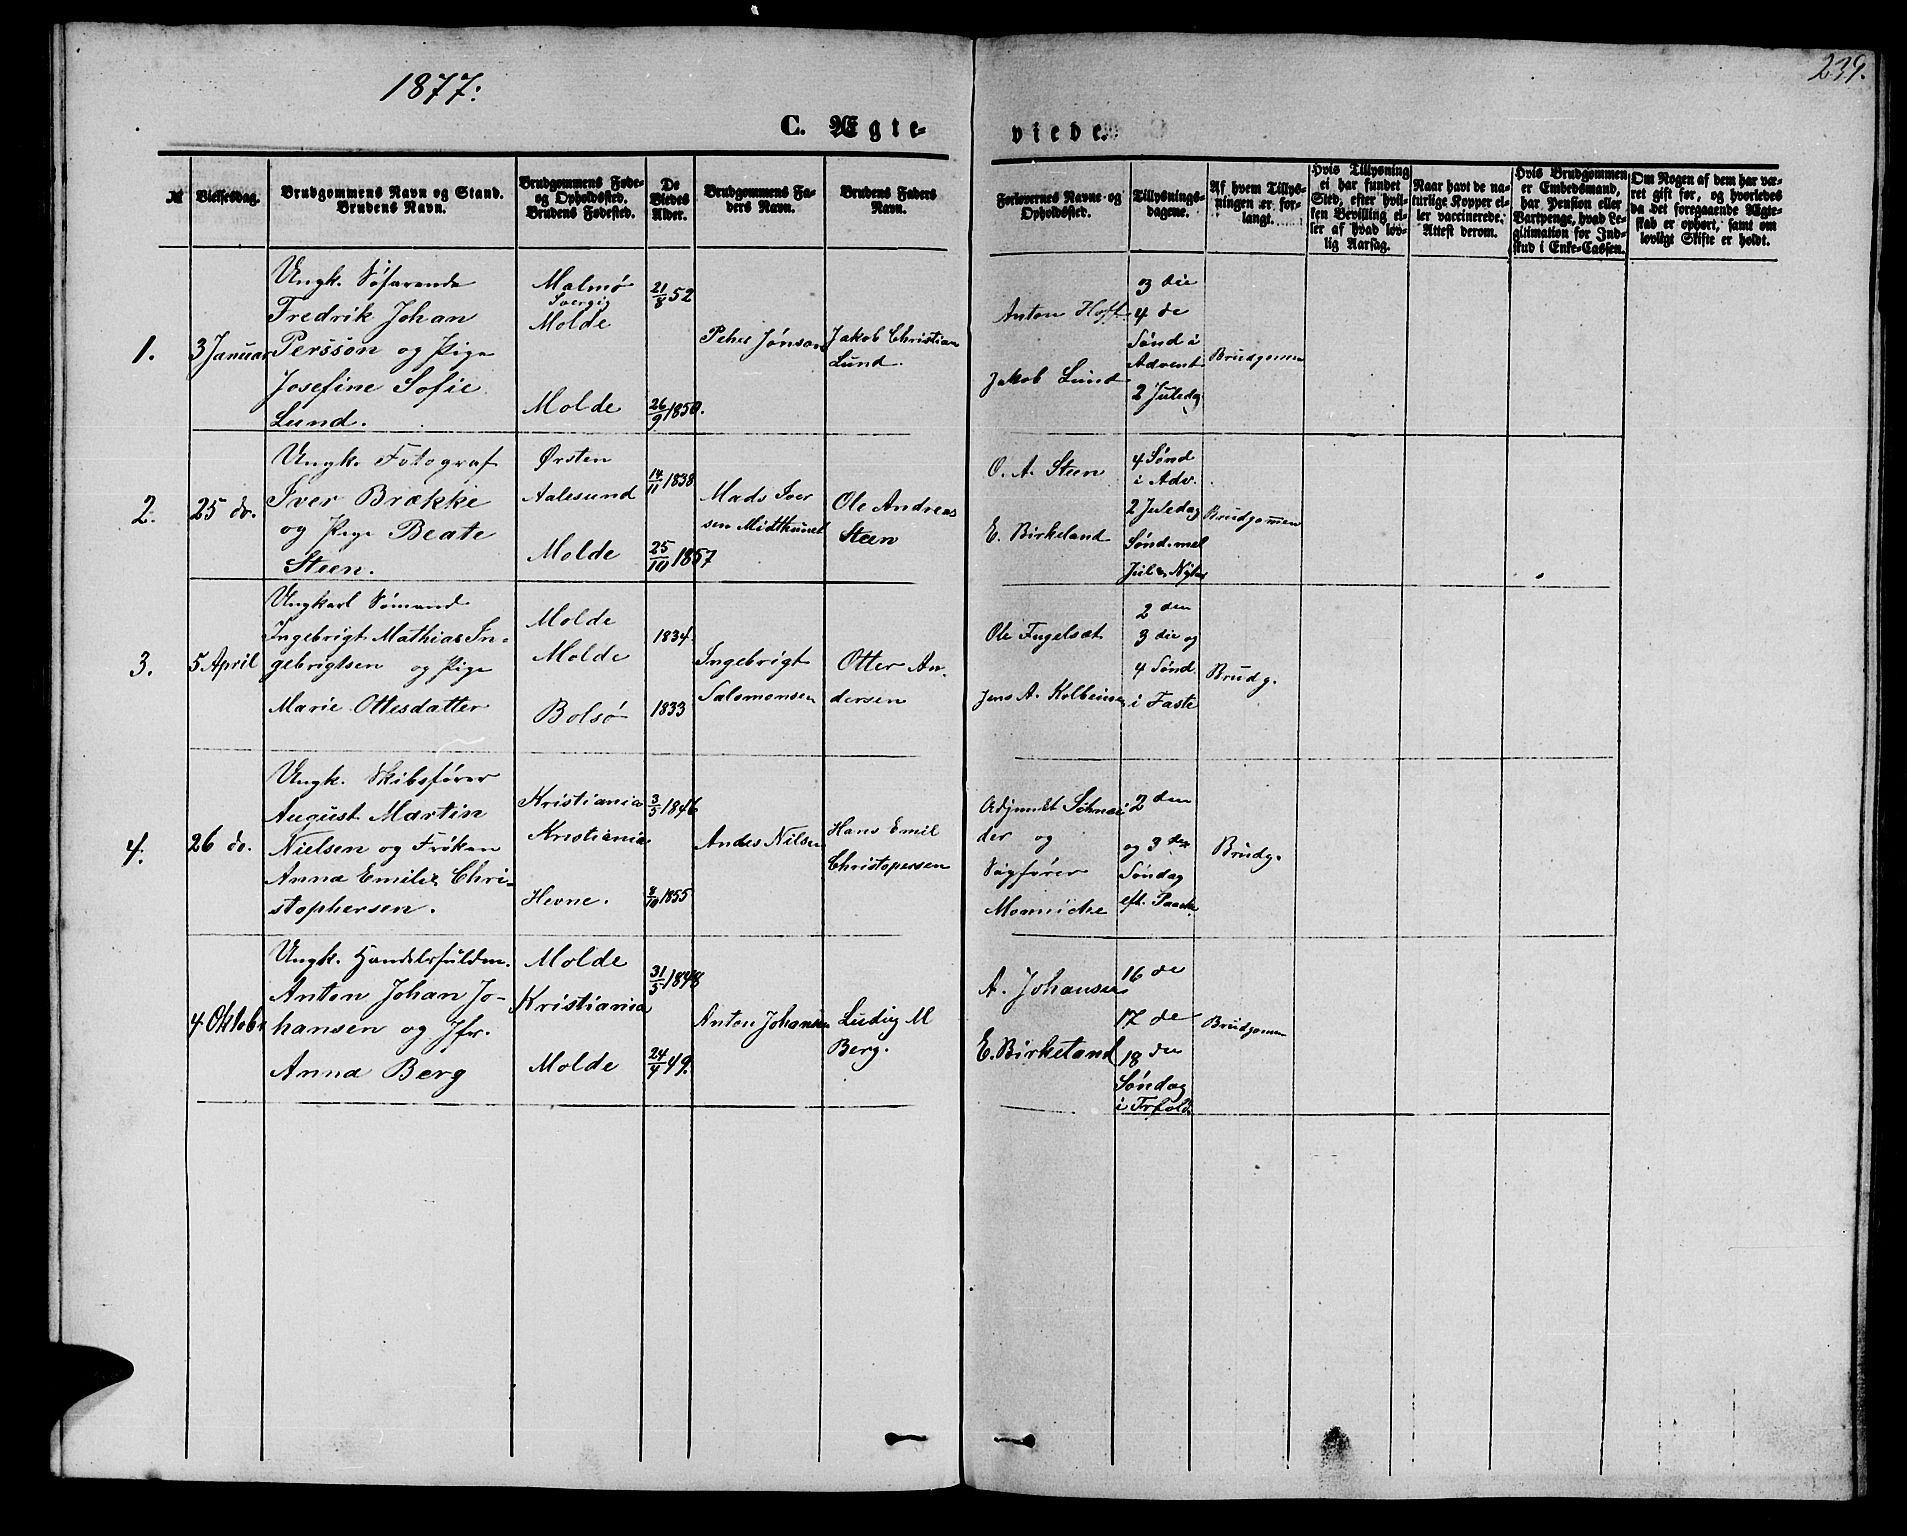 1877.
239.
C. Ægte-
viede.
№
Vielsesdag.
Brudgommens Navn og Stand.
Brudens Navn.
Brudgommens Føde-
og Opholdssted.
Brudens Fødested.
De
Viedes
Alder.
Brudgommens Fa-
ders Navn.
Brudens Faders
Navn.
Forlovernes Navne og
Opholdssted.
Tillysnings-
dagene.
Af hvem Tillys-
ningen er for-
langt.
Hvis Tillysning
ei har fundet
Sted, efter hvil-
ken Bevilling el-
ler af hvad lov-
lig Aarsag.
Naar havt de na-
turlige Kopper el-
ler vaccinerede.
Attest derom.
Hvis Brudgommen
er Embedsmand,
har Pension eller
Vartpenge, hvad Le-
gitimation for Ind-
skud i Enke-Cassen.
Om Nogen af dem har væ-
ret gift før, og hvorledes
da det foregaaende Ægte-
skab er ophørt, samt om
lovligt Skifte er holdt.
1.
3 Januar
Ungk. Søfarende
Fredrik Johan
Persson og Pige
Josefine Sofie
Lund.
Malmø
Sverrig
Molde
Molde
21/8 52
26/9 1850.
Peter Jönson
Jakob Christian
Lund.
Anton Hoff
Jakob Lund
3 die
4 de
Sønd i
Advent
2 Juledag
Brudgomen
2.
25 do.
Ungk. Fotograf
Iver Brække
og Pige Beate
Steen.
Ørsten
Aalesund
Molde
14/11 1838
25/10 1857
Mads Iver
sen Midthunet
Ole Andreas
Steen
O. A. Steen
E. Birkeland
4 Sønd
i Adv.
2 Juledag
Sønd. mel
Jul & Nytar
Brudgommen
3.
5 April
Ungkarl Sømand
Ingebrigt Mathias In-
gebrigtsen og Pige
Marie Ottesdatter
Molde
Molde
Bolsø
1834.
1833
Ingebrigt
Salomonsen
Otter An-
dersen
Ole Fugelsæt
Jens A. Kolbeinsen
2 den
3 die og
4 Sønd.
i Faste
Brudg.
4.
26 do.
Ungk. Skibsfører
August Martin
Nielsen og Frøken
Anna Emilie Chri-
stophersen.
Kristiania
Kristiania
Hevne.
3/5 1846
8/10 1855
Andes Nilsen
Hans Emil
Christopersen
Adjunkt Schnei
der og
Sagfører
2 den
og 3 den
Søndag
eft. Paaske
Brudg.
4 Oktobr
Ungk. Handelsfuldm.
Anton Johan Jo-
hansen og Jfr.
Anna Berg
Molde
Kristiania
Molde
31/5 1848
24/4 49.
Anton Johansen
Ludvig M
Berg.
A. Johansen
E. Birkeland
16 de
17 de
18 de
Søndag
i Trfold.
Brudgomen